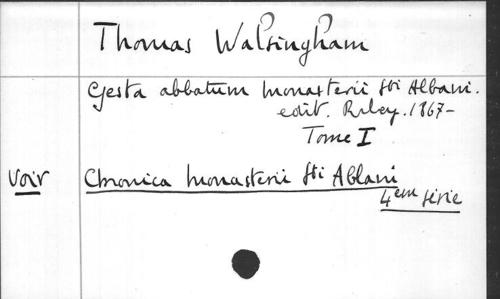 Thomas Walsingham
Gesta abbatum monasterii Sti Albani.
edit. Riley. 1867-
Tome I
Voir Chronica monasterii Sti Ablani
4em série